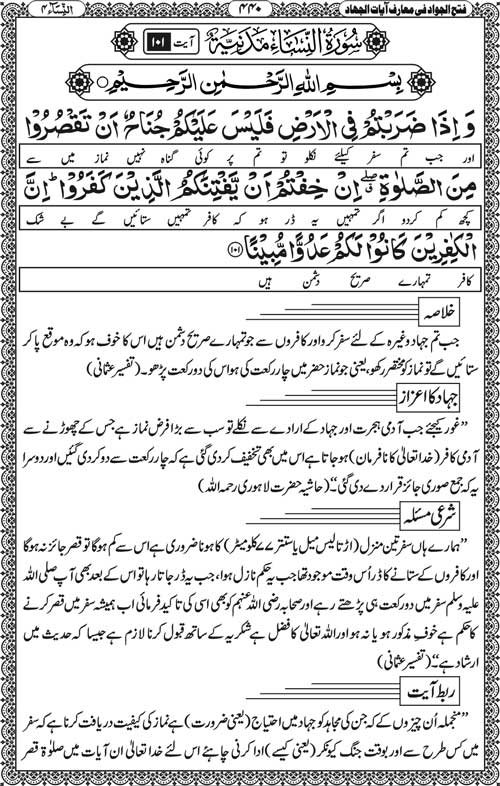 فتح الجواد فی معارف آیات الجهاد ۴۴۰ النساء ۴
سُوْرَةُ النِّسَاءِ مَدَنِيَّةٌ آیت ۱۰۱
بِسْمِ اللهِ الرَّحْمٰنِ الرَّحِيْمِ
وَاِذَا ضَرَبْتُمْ فِى الْاَرْضِ فَلَيْسَ عَلَيْكُمْ جُنَاحٌ اَنْ تَقْصُرُوْا
اور جب تم سفر کیلئے نکلو تو تم پر کوئی گناہ نہیں نماز میں سے
مِنَ الصَّلٰوةِ ۖ اِنْ خِفْتُمْ اَنْ يَّفْتِنَكُمُ الَّذِيْنَ كَفَرُوْا ؕ اِنَّ
کچھ کم کردو اگر تمہیں یہ ڈر ہو کہ کافر تمہیں ستائیں گے بے شک
الْكٰفِرِيْنَ كَانُوْا لَكُمْ عَدُوًّا مُّبِيْنًا ﴿۱۰۱﴾
کافر تمہارے صریح دشمن ہیں
خلاصہ
جب تم جہاد وغیرہ کے لئے سفر کرو اور کافروں سے جو تمہارے صریح دشمن ہیں اس کا خوف ہو کہ وہ موقع پا کر
ستائیں گے تو نماز کو مختصر رکھو، یعنی جو نماز حضر میں چار رکعت کی ہو اس کی دو رکعت پڑھو۔ (تفسیر عثمانی)
جہاد کا اعزاز
”غور کیجئے جب آدمی ہجرت اور جہاد کے ارادے سے نکلے تو سب سے بڑا فرض نماز ہے جس کے چھوڑنے سے
آدمی کافر (خدا تعالیٰ کا نافرمان) ہو جاتا ہے اس میں بھی تخفیف کر دی گئی ہے کہ چار رکعت سے دو کر دی گئیں اور دوسرا
یہ کہ جمع صوری جائز قرار دے دی گئی۔“ (حاشیہ حضرت لاہوری رحمہ اللہ)
شرعی مسئلہ
”ہمارے ہاں سفر تین منزل (اڑتالیس میل یا ستتر ۷۷ کلومیٹر) کا ہونا ضروری ہے اس سے کم ہو گا تو قصر جائز نہ ہوگا
اور کافروں کے ستانے کا ڈر اُس وقت موجود تھا جب یہ حکم نازل ہوا، جب یہ ڈر جاتا رہا تو اس کے بعد بھی آپ صلی اللہ
علیہ وسلم سفر میں دو رکعت ہی پڑھتے رہے اور صحابہ رضی اللہ عنہم کو بھی اسی کی تاکید فرمائی اب ہمیشہ سفر میں قصر کرنے
کا حکم ہے خوف مذکور ہو یا نہ ہو اور اللہ تعالیٰ کا فضل ہے شکریہ کے ساتھ قبول کرنا لازم ہے جیسا کہ حدیث میں
ارشاد ہے۔“ (تفسیر عثمانی)
ربط آیت
”منجملہ اُن چیزوں کے کہ جن کی مجاہد کو جہاد میں احتیاج (یعنی ضرورت) ہے نماز کی کیفیت دریافت کرنا ہے کہ سفر
میں کس طرح سے اور بوقت جنگ کیونکر (یعنی کیسے) ادا کرنی چاہئے اس لئے خدا تعالیٰ ان آیات میں صلوٰۃ قصر